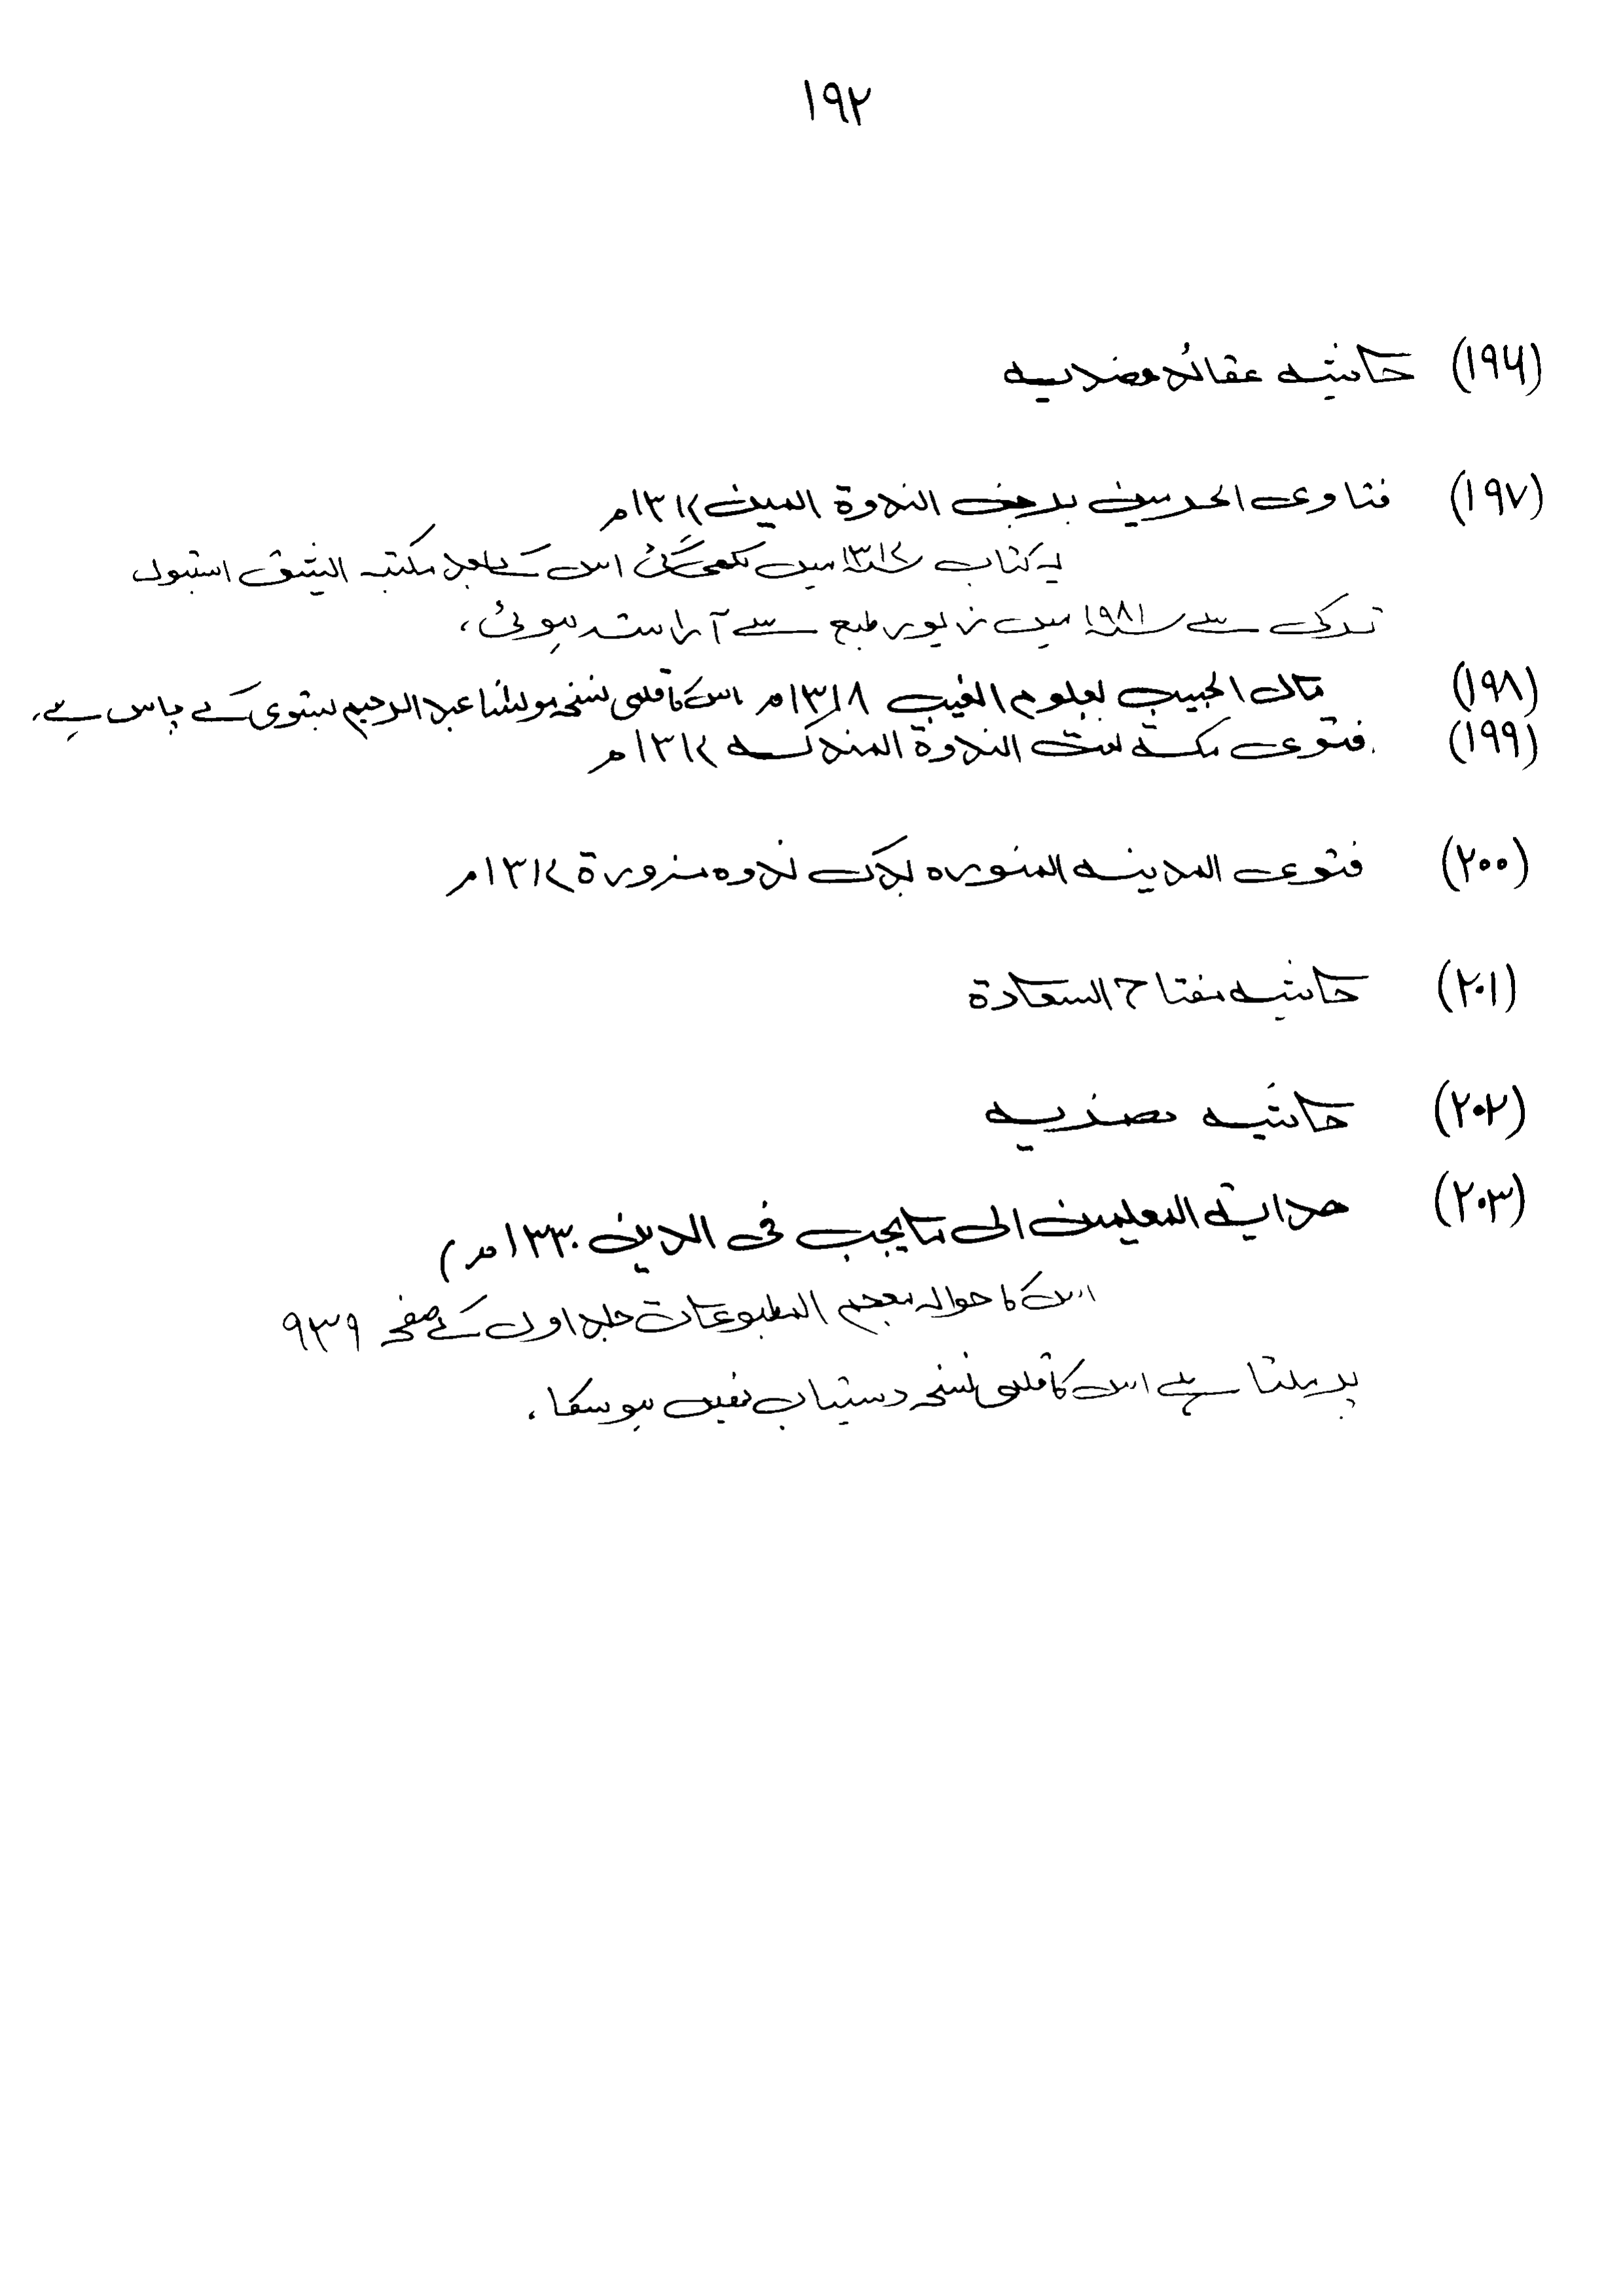 ۱۹۲
(۱۹۶) حاشیہ عقائد عضدیہ
(۱۹۷) فتاوی الحرمین برجف الندوۃ المین ۱۳۱۷ھ
یہ کتاب ۱۳۱۷ میں لکھی گئی اس کے بعد مکتبہ الیشق استبول
ترکی سے ۱۹۸۱ میں زیور طبع سے آراستہ ہوئی،
(۱۹۸) مال الحبیب بعلوم الغیب ۱۳۱۸ھ اس کا قلمی نسخہ مولٰنا عبدالرحیم بستوی کے پاس ہے،
(۱۹۹) فتوی مکۃ لفت الندوۃ المندکہ ۱۳۱۷ھ
(۲۰۰) فتوی المدینہ المنورہ لدک ندوہ مزورۃ ۱۳۱۷ھ
(۲۰۱) حاشیہ مفتاح السعادۃ
(۲۰۲) حاشیہ
(۲۰۳) ھدایۃ المعلمین الی مایجب فی الدین ۱۳۳۰ھ)
اس کا حوالہ معجم المطبوعات جلد اول کے صفحہ ۹۳۹
پر ملتا ہے اس کا قلمی نسخہ دستیاب نہیں ہوسکا،